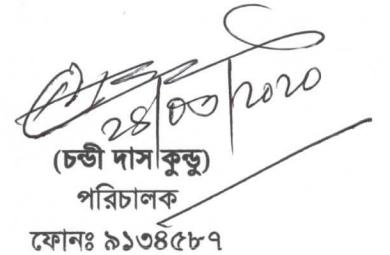 ২৪/০৩/২০২০
(চন্ডী দাস কুন্ডু)
পরিচালক
ফোনঃ ৯১৩৪৫৮৭